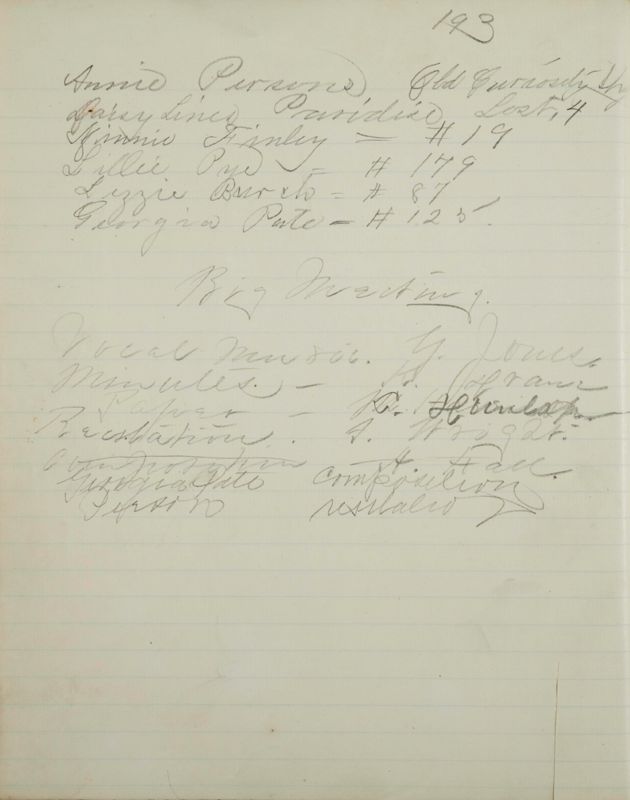 193
Annie Persons Old Curiosity
Daisy Lines Paridise Lost, 4
Minnie Finley = # 19
Lillie Pye - # 179
Lizzie = # 87
Georgia Pate - # 125.
Big Meeting.
Vocal Music. G. Jones.
Minutes. -
Paper - Dunlap
Recitation. Wright.
Composition A. Hall.
Georgia Pate composition
Person